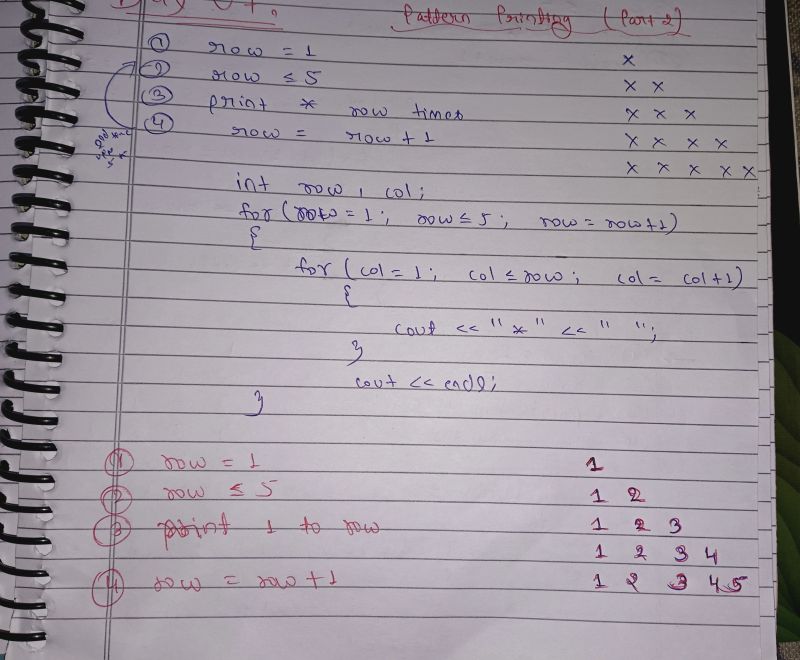 Pattern Printing (Part 2)
① row = 1
② row ≤ 5
③ print * row times
④ row = row + 1
*
* *
* * *
* * * *
* * * * *
int row, col;
for(row = 1; row ≤ 5; row = row+1)
{
for (col = 1; col ≤ row; col = col+1)
{
cout << "*" << " ";
}
cout << endl;
}
① row = 1
② row ≤ 5
③ print 1 to row
④ row = row + 1
1
1 2
1 2 3
1 2 3 4
1 2 3 4 5